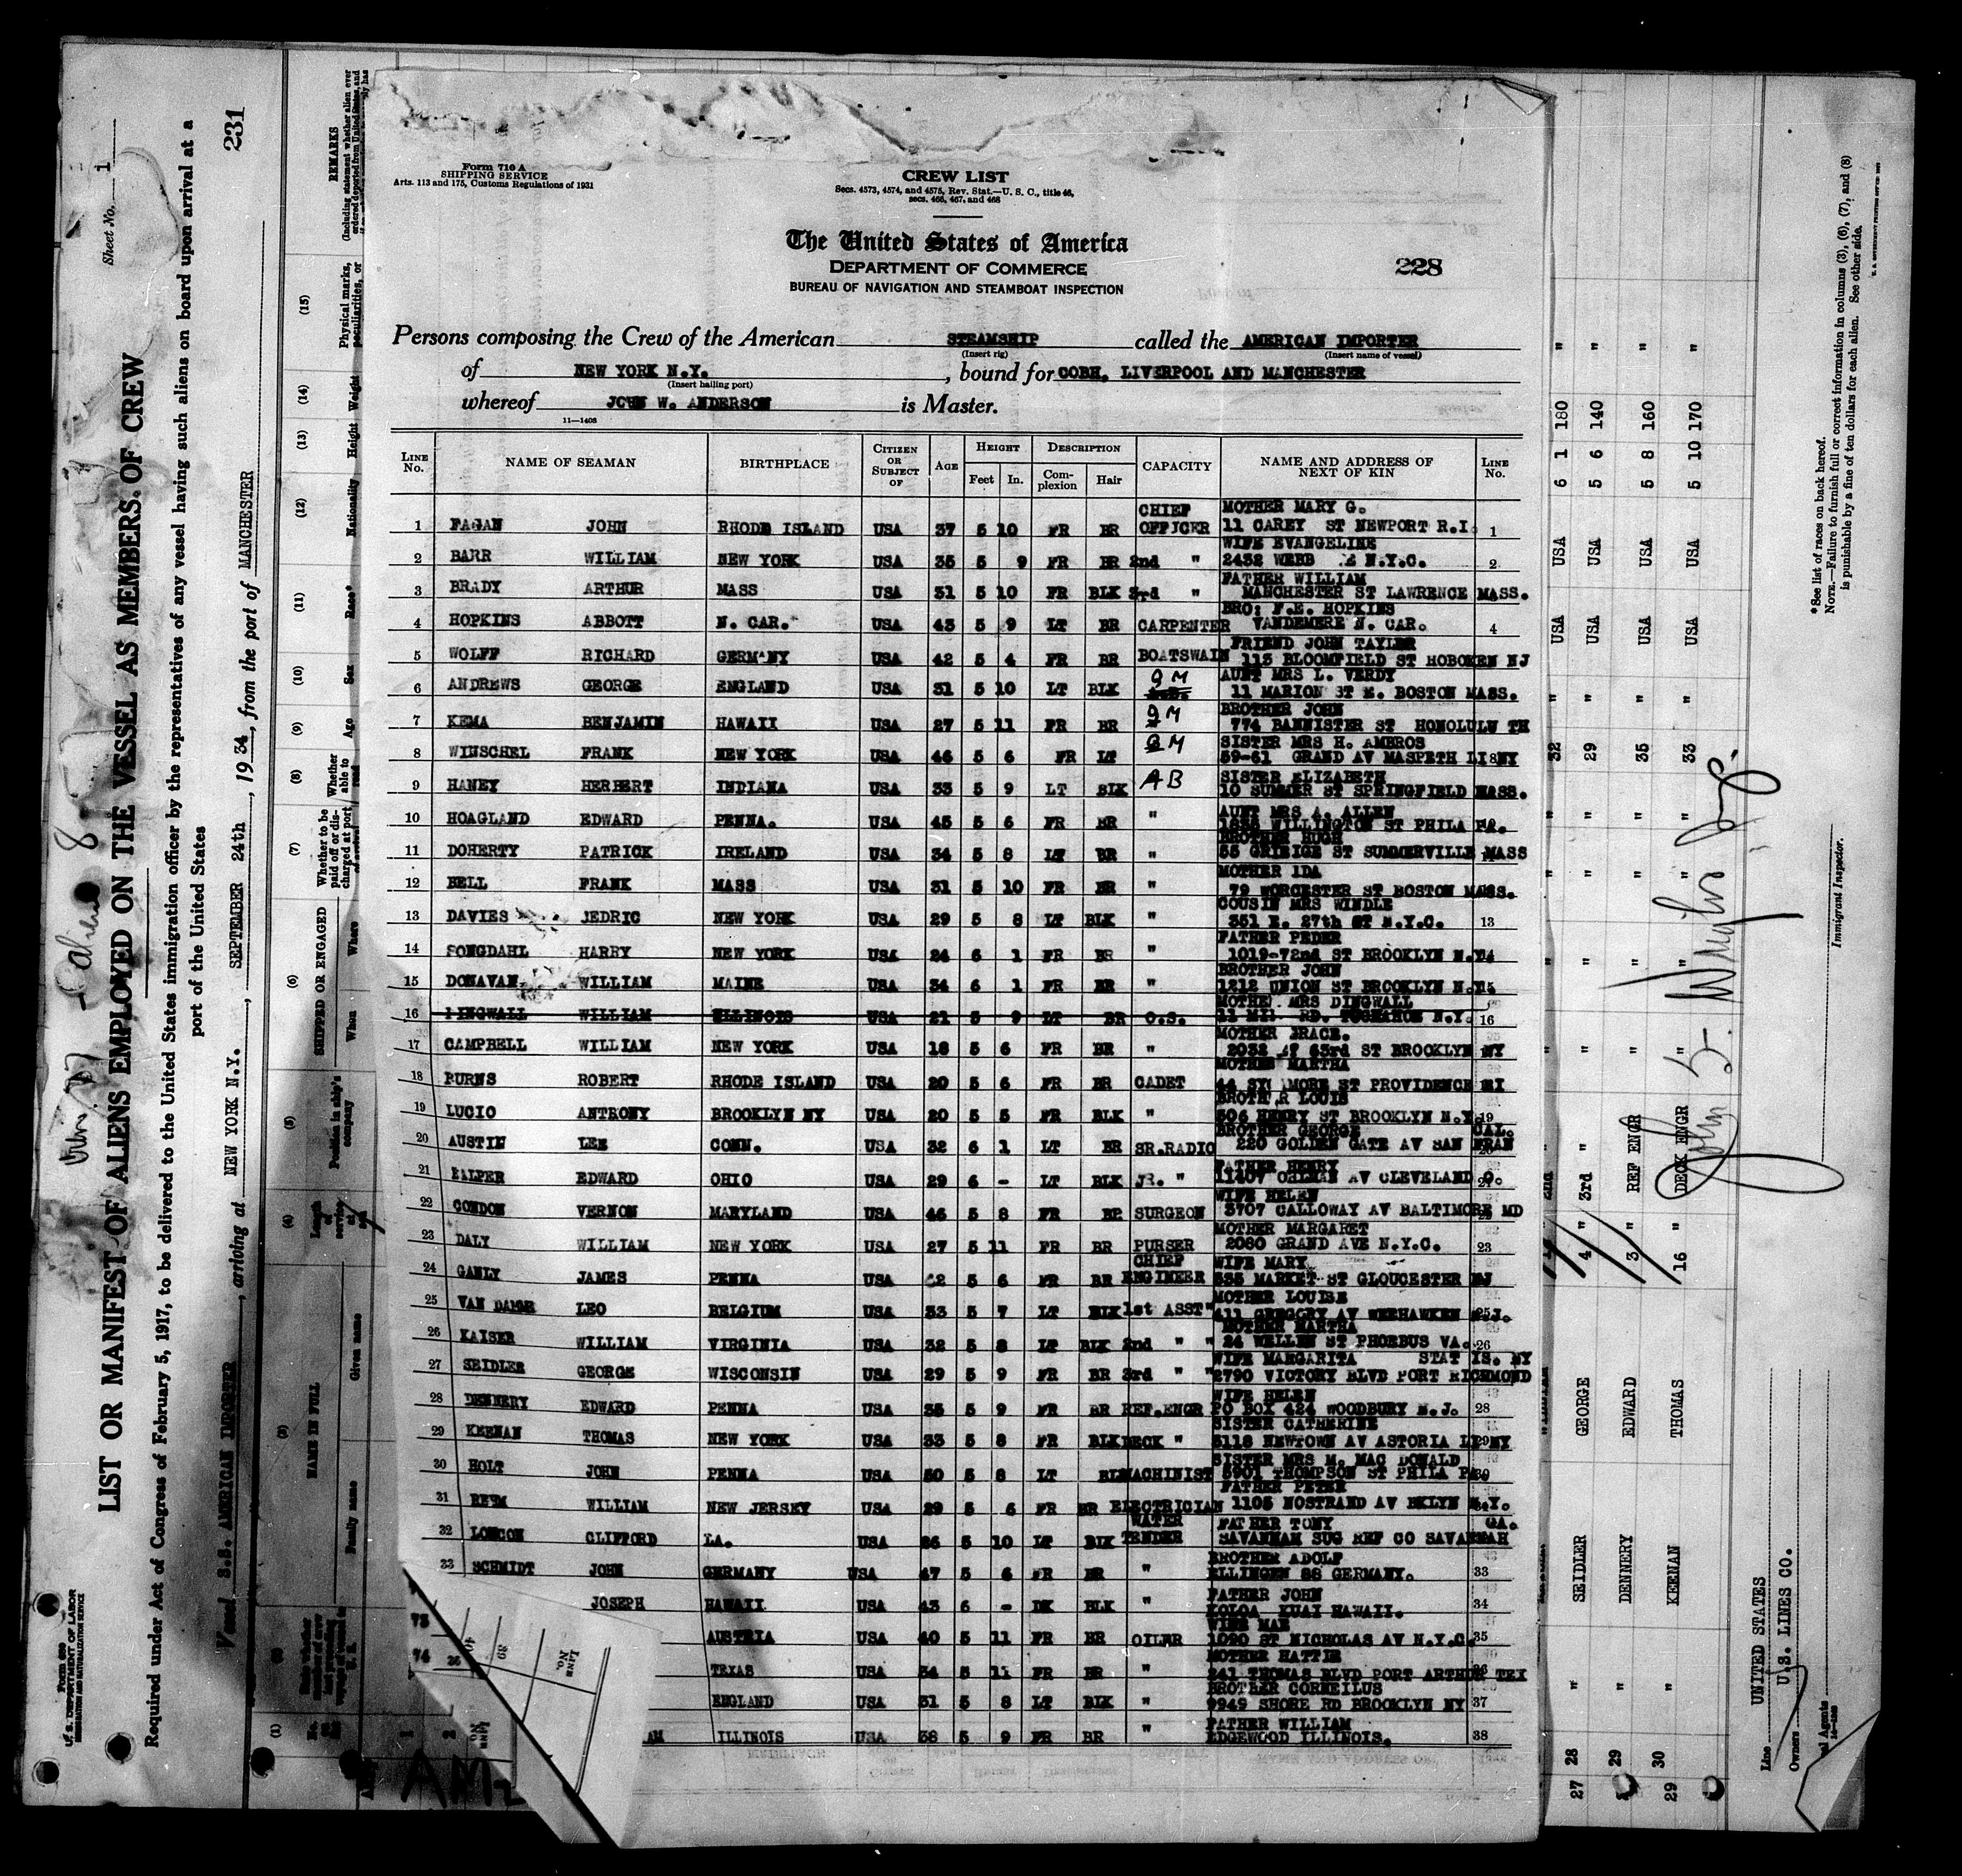 Form 710 A
SHIPPING SERVICE
Arts. 113 and 175, Customs Regulations of 1931
CREW LIST
Secs. 4573, 4574, and 4575, Rev. Stat.—U. S. C., title 46,
secs. 466, 467, and 468
The United States of America
DEPARTMENT OF COMMERCE
BUREAU OF NAVIGATION AND STEAMBOAT INSPECTION
228
Persons composing the Crew of the American STEAMSHIP called the AMERICAN IMPORTER
(Insert rig) (Insert name of vessel)
of NEW YORK N.Y., bound for COBH, LIVERPOOL AND MANCHESTER
(Insert hailing port)
whereof JOHN W. ANDERSON is Master.
11—1408
LINE No. NAME OF SEAMAN BIRTHPLACE CITIZEN OR SUBJECT OF AGE HEIGHT Feet In. DESCRIPTION Complexion Hair CAPACITY NAME AND ADDRESS OF NEXT OF KIN LINE No.
1 FAGAN JOHN RHODE ISLAND USA 37 5 10 FR BR CHIEF OFFICER MOTHER MARY G. 11 CAREY ST NEWPORT R.I. 1
2 BARR WILLIAM NEW YORK USA 35 5 9 FR BR 2nd " WIFE EVANGELINE 2432 WEBB N.Y.C. 2
3 BRADY ARTHUR MASS USA 31 5 10 FR BLK 3rd " FATHER WILLIAM MANCHESTER ST LAWRENCE MASS.
4 HOPKINS ABBOTT N. CAR. USA 43 5 9 LT BR CARPENTER BRO: F.E. HOPKINS VANDEMERE N. CAR. 4
5 WOLFF RICHARD GERMANY USA 42 5 4 FR BR BOATSWAIN FRIEND JOHN TAYLER 113 BLOOMFIELD ST HOBOKEN NJ
6 ANDREWS GEORGE ENGLAND USA 31 5 10 LT BLK QM AUNT MRS L. VERDY 11 MARION ST E. BOSTON MASS.
7 KEMA BENJAMIN HAWAII USA 27 5 11 FR BR QM BROTHER JOHN 774 BANNISTER ST HONOLULU TH
8 WINSCHEL FRANK NEW YORK USA 46 5 6 FR LT QM SISTER MRS H. AMBROS 59-61 GRAND AV MASPETH LI NY
9 HANEY HERBERT INDIANA USA 33 5 9 LT BLK AB SISTER ELIZABETH 10 SUMMER ST SPRINGFIELD MASS.
10 HOAGLAND EDWARD PENNA. USA 45 5 6 FR BR " AUNT MRS A. ALLEN WILLINGTON ST PHILA PA.
11 DOHERTY PATRICK IRELAND USA 34 5 8 LT BR " BROTHER HUGH 55 ST SUMMERVILLE MASS
12 BELL FRANK MASS USA 31 5 10 FR BR " MOTHER IDA 79 WORCESTER ST BOSTON MASS.
13 DAVIES JEDRIC NEW YORK USA 29 5 8 LT BLK " COUSIN MRS WINDLE 351 E. 27th ST N.Y.C. 13
14 SONGDAHL HARRY NEW YORK USA 24 6 1 FR BR " FATHER PEDER 1019-72nd ST BROOKLYN N.Y.
15 DONAVAN WILLIAM MAINE USA 34 6 1 FR BR " BROTHER JOHN 1212 UNION ST BROOKLYN N.Y.
16 DINGWALL WILLIAM ILLINOIS USA 21 5 9 LT BR O.S. MOTHER MRS DINGWALL 11 RD. TUCKAHOE N.Y. 16
17 CAMPBELL WILLIAM NEW YORK USA 18 5 6 FR BR " MOTHER GRACE. 2032 63rd ST BROOKLYN NY
18 BURNS ROBERT RHODE ISLAND USA 20 5 6 FR BR CADET MOTHER MARTHA 44 SYCAMORE ST PROVIDENCE RI
19 LUCIO ANTHONY BROOKLYN NY USA 20 5 5 FR BLK " BROTHER LOUIS 506 HENRY ST BROOKLYN N.Y. 19
20 AUSTIN LEE CONN. USA 32 6 1 LT BR SR.RADIO BROTHER GEORGE CAL. 220 GOLDEN GATE AV SAN FRAN
21 EDWARD OHIO USA 29 6 - LT BLK JR. " FATHER HENRY 11407 AV CLEVELAND O.
22 CONDON VERNON MARYLAND USA 46 5 8 FR BR SURGEON WIFE HELEN 3707 CALLOWAY AV BALTIMORE MD
23 DALY WILLIAM NEW YORK USA 27 5 11 FR BR PURSER MOTHER MARGARET 2080 GRAND AVE N.Y.C. 23
24 GANLY JAMES PENNA USA 5 6 FR BR CHIEF ENGINEER WIFE MARY 535 MARKET ST GLOUCESTER NJ
25 VAN DAMME LEO BELGIUM USA 33 5 7 LT BLK 1st ASST" MOTHER LOUISE 411 GREGORY AV WEEHAWKEN N.J.
26 KAISER WILLIAM VIRGINIA USA 32 5 8 LT BLK 2nd " " MOTHER MARTHA 24 WELLEN ST PHOEBUS VA. 26
27 SEIDLER GEORGE WISCONSIN USA 29 5 9 FR BR 3rd " " WIFE MARGARITA STAT IS. NY 2790 VICTORY BLVD PORT RICHMOND
28 DENNERY EDWARD PENNA USA 35 5 9 FR BR REF.ENGR WIFE HELEN PO BOX 424 WOODBURY N.J. 28
29 KEENAN THOMAS NEW YORK USA 33 5 8 FR BLK DECK " SISTER CATHERINE 3118 NEWTOWN AV ASTORIA LI NY
30 HOLT JOHN PENNA USA 50 5 8 LT BL MACHINIST SISTER MRS M. MAC DONALD 5901 THOMPSON ST PHILA PA
31 REHM WILLIAM NEW JERSEY USA 29 5 6 FR BR ELECTRICIAN FATHER PETER 1105 NOSTRAND AV BKLYN N.Y.
32 CLIFFORD LA. USA 26 5 10 LT BLK WATER TENDER FATHER TONY GA. SAVANNAH SUG REF CO SAVANNAH
33 SCHMIDT JOHN GERMANY USA 47 5 6 FR BR " BROTHER ADOLF ELLINGEN 88 GERMANY. 33
JOSEPH HAWAII USA 43 6 - DK BLK " FATHER JOHN KOLOA KUAI HAWAII. 34
AUSTRIA USA 40 5 11 FR BR OILER WIFE MAE 1090 ST NICHOLAS AV N.Y.C. 35
TEXAS USA 34 5 11 FR BR " MOTHER HATTIE 241 THOMAS BLVD PORT ARTHUR TEX
ENGLAND USA 31 5 8 LT BLK " BROTHER CORNEILUS 9949 SHORE RD BROOKLYN NY 37
AM ILLINOIS USA 38 5 9 FR BR " FATHER WILLIAM EDGEWOOD ILLINOIS. 38
Form 680
U. S. DEPARTMENT OF LABOR
IMMIGRATION AND NATURALIZATION SERVICE
Sheet No. 1
LIST OR MANIFEST OF ALIENS EMPLOYED ON THE VESSEL AS MEMBERS OF CREW
Required under Act of Congress of February 5, 1917, to be delivered to the United States immigration officer by the representatives of any vessel having such aliens on board upon arrival at a
port of the United States
231
Vessel S.S. AMERICAN IMPORTER, arriving at NEW YORK N.Y., SEPTEMBER 24th, 1934, from the port of MANCHESTER
(1) (3) (4) (5) (6) (7) (8) (9) (10) (11) (12) (13) (14) (15)
NAME IN FULL
Family name Given name
Length of service at sea
Position in ship's company
SHIPPED OR ENGAGED
When Where
Whether to be paid off or discharged at port
Whether able to read
Age Sex Race* Nationality Height Weight
Physical marks, peculiarities, or
REMARKS
(Including statement whether alien ever
73
74
LINE No.
2nd " " " " 32 " USA USA 6 1 180 "
27 28 " SEIDLER GEORGE 4 " 3rd " " " " 29 " USA USA 5 6 140 "
29 " DENNERY EDWARD 3 " REF ENGR " " " " 35 " USA USA 5 8 160 "
29 30 " KEENAN THOMAS 16 " DECK ENGR " " " " 33 " USA USA 5 10 170 "
Line UNITED STATES
Owners U.S. LINES CO.
Immigrant Inspector.
*See list of races on back hereof.
NOTE.—Failure to furnish full or correct information in columns (3), (6), (7), and (8)
is punishable by a fine of ten dollars for each alien. See other side.